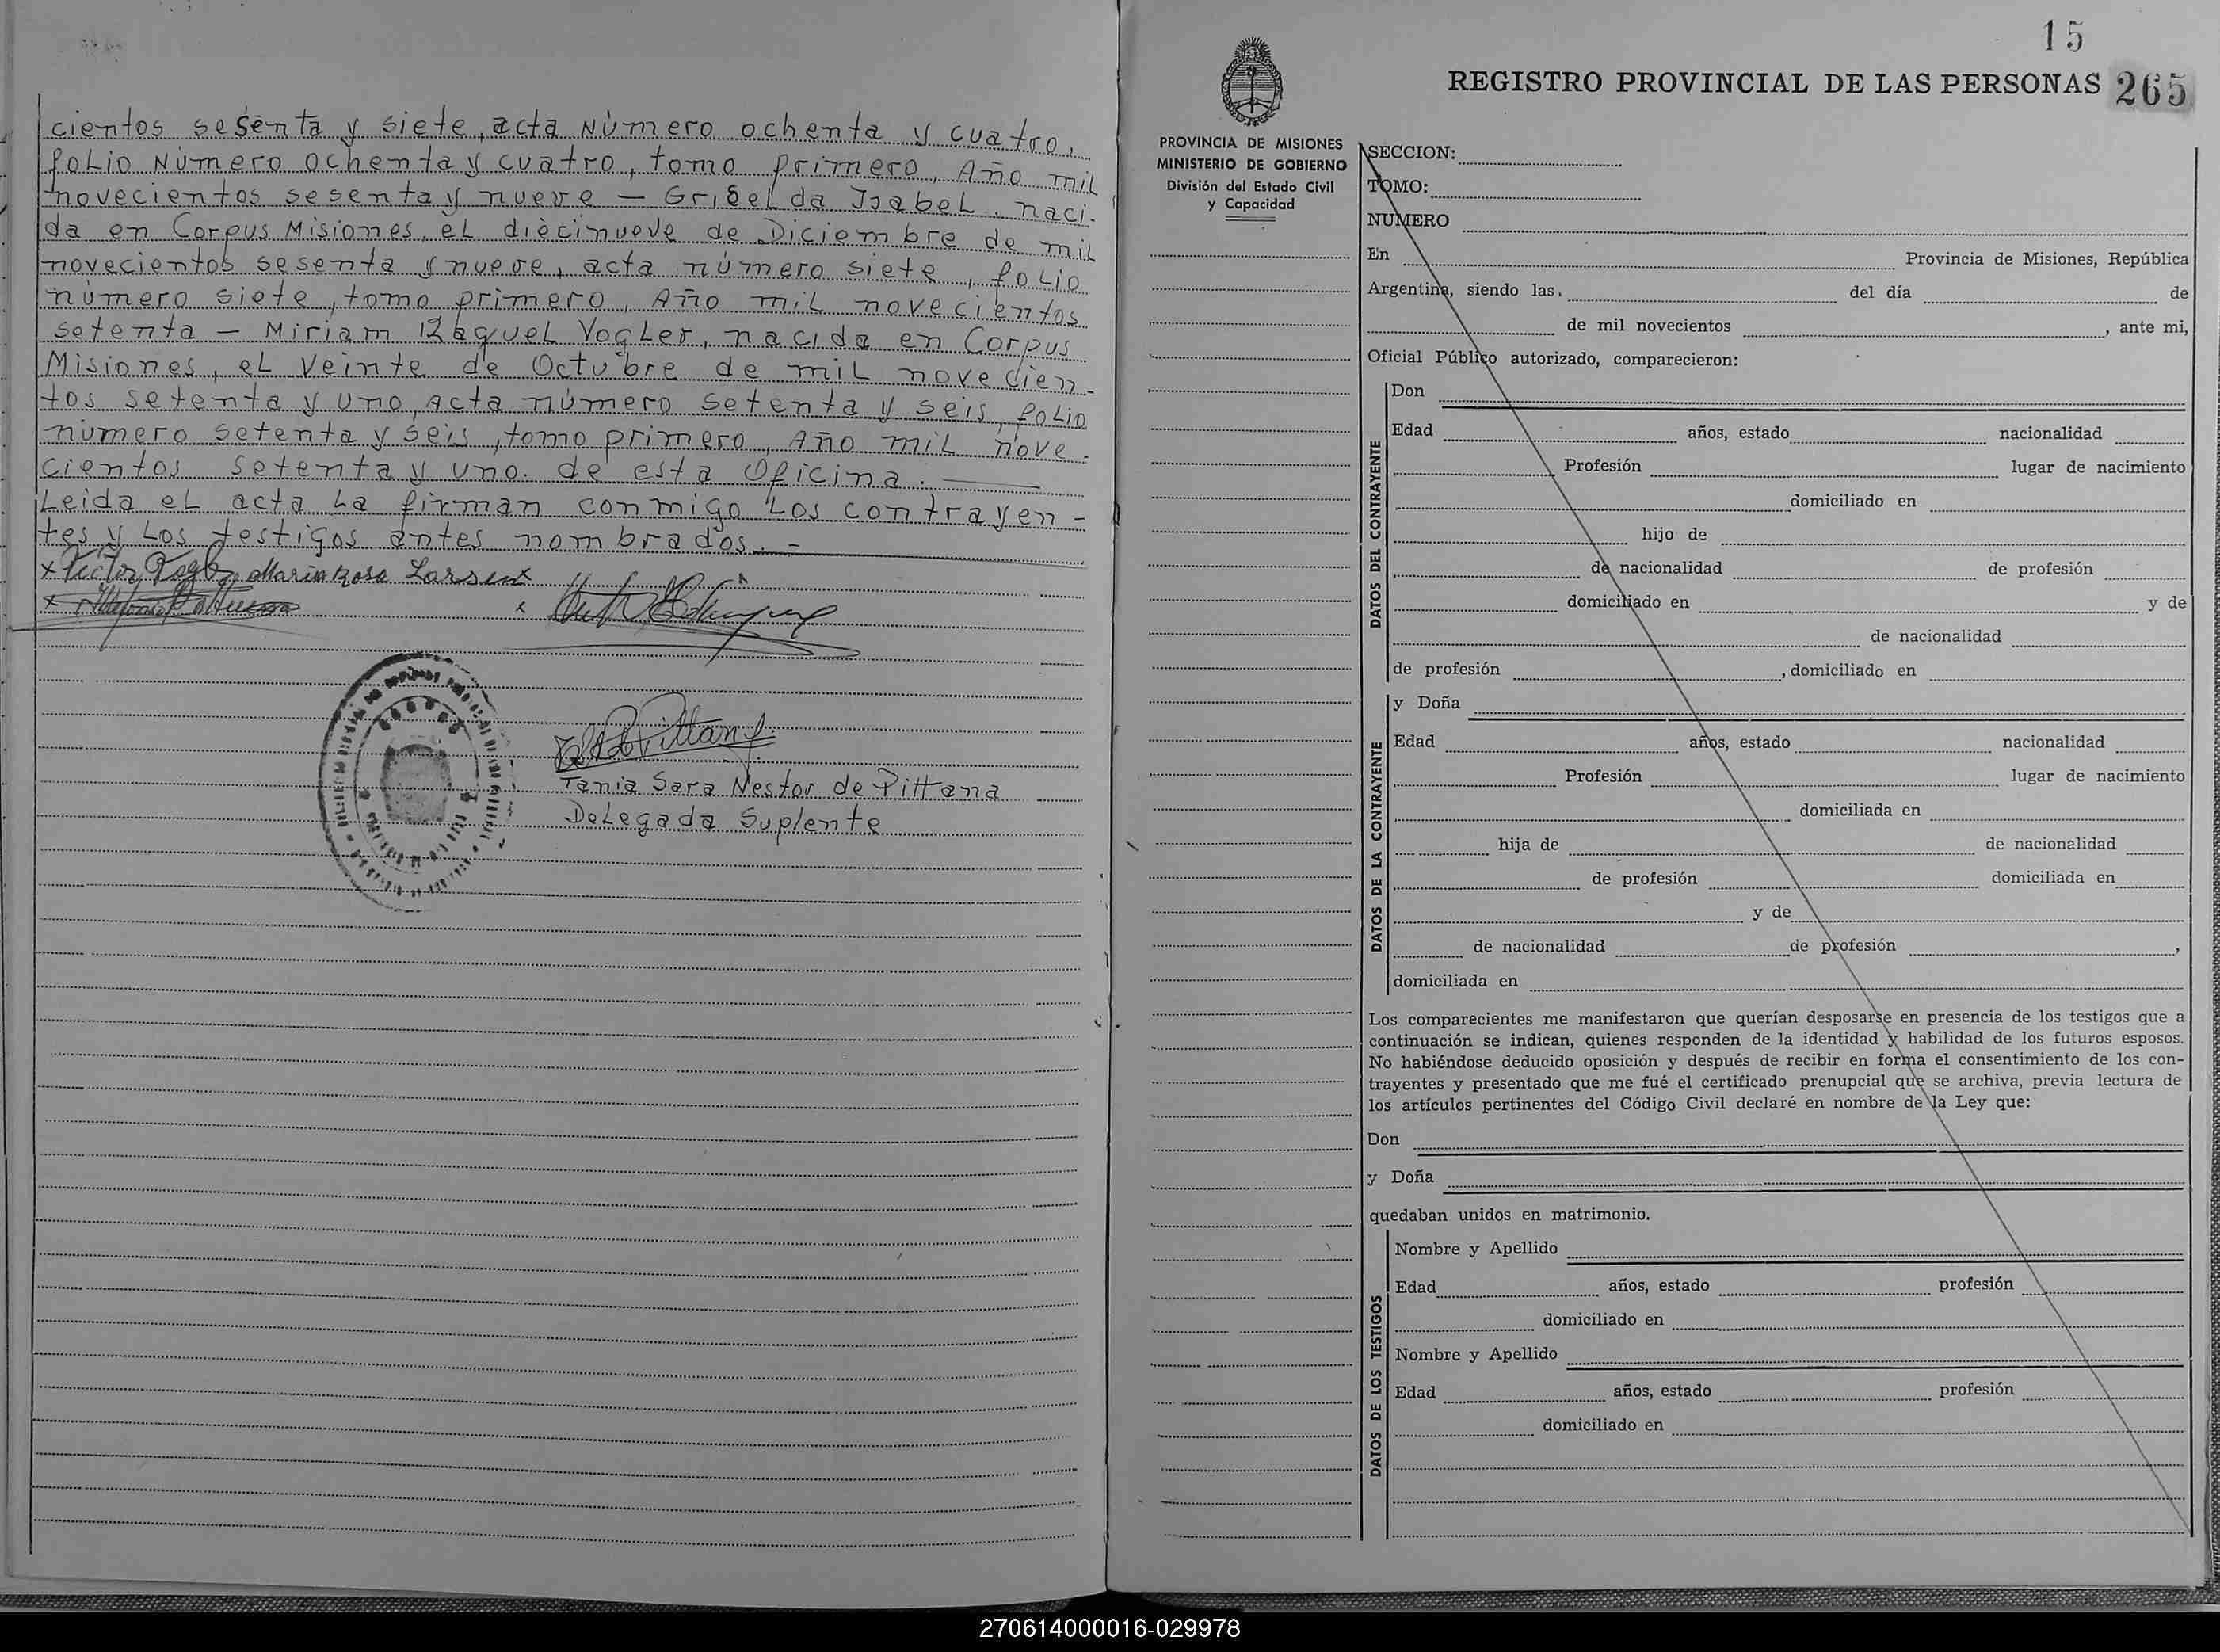 cientos sesenta y siete, acta Número ochenta y cuatro,
foLio Número ochenta y cuatro, tomo primero, Año mil
novecientos sesenta y nueve — GriseLda IsabeL. naci-
da en Corpus Misiones, eL diecinueve de Diciembre de mil
novecientos sesenta y nueve, acta número siete, foLio
número siete, tomo primero, Año miL novecientos
setenta — Miriam RaqueL VogLer, nacida en Corpus
Misiones, eL veinte de Octubre de miL novecien-
tos setenta y uno, Acta número setenta y seis, foLio
número setenta y seis, tomo primero, Año miL nove-
cientos setenta y uno. de esta Oficina.
Leida eL acta La firman conmigo Los contrayen-
tes y Los testigos antes nombrados. -
x Victor Vogler Maria Rosa Larsen x
x
x
Tania Sara Nestor de Pittana
DeLegada Suplente
15
REGISTRO PROVINCIAL DE LAS PERSONAS 265
PROVINCIA DE MISIONES
MINISTERIO DE GOBIERNO
División del Estado Civil
y Capacidad
SECCION:
TOMO:
NUMERO
En Provincia de Misiones, República
Argentina, siendo las, del día de
de mil novecientos , ante mi,
Oficial Público autorizado, comparecieron:
DATOS DEL CONTRAYENTE
Don
Edad años, estado nacionalidad
Profesión lugar de nacimiento
domiciliado en
hijo de
de nacionalidad de profesión
domiciliado en y de
de nacionalidad
de profesión , domiciliado en
DATOS DE LA CONTRAYENTE
y Doña
Edad años, estado nacionalidad
Profesión lugar de nacimiento
domiciliada en
hija de de nacionalidad
de profesión domiciliada en
y de
de nacionalidad de profesión ,
domiciliada en
Los comparecientes me manifestaron que querían desposarse en presencia de los testigos que a
continuación se indican, quienes responden de la identidad y habilidad de los futuros esposos.
No habiéndose deducido oposición y después de recibir en forma el consentimiento de los con-
trayentes y presentado que me fué el certificado prenupcial que se archiva, previa lectura de
los artículos pertinentes del Código Civil declaré en nombre de la Ley que:
Don
y Doña
quedaban unidos en matrimonio.
DATOS DE LOS TESTIGOS
Nombre y Apellido
Edad años, estado profesión
domiciliado en
Nombre y Apellido
Edad años, estado profesión
domiciliado en
270614000016-029978